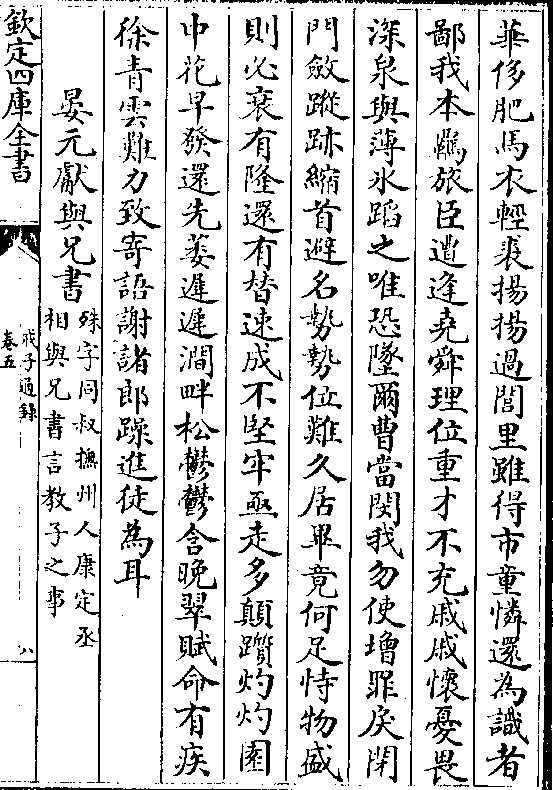 華侈肥馬衣輕裘揚揚過閭里雖得市童憐還為識者
鄙我本羈旅臣遭逢堯舜理位重才不充戚戚懷憂畏
深泉與薄氷蹈之唯恐墜爾曹當閔我勿使增罪戾閉
門斂蹤跡縮首避名勢勢位難久居畢竟何足恃物盛
則必衰有隆還有替速成不堅牢亟走多顛躓灼灼園
中花早發還先萎遲遲澗畔松鬱鬱含晚翠賦命有疾
徐青雲難力致寄語謝諸郎躁進徒為耳
晏元獻與兄書
殊字同叔撫州人康定丞
相與兄書言教子之事
欽定四庫全書
戒子通錄
卷五
八